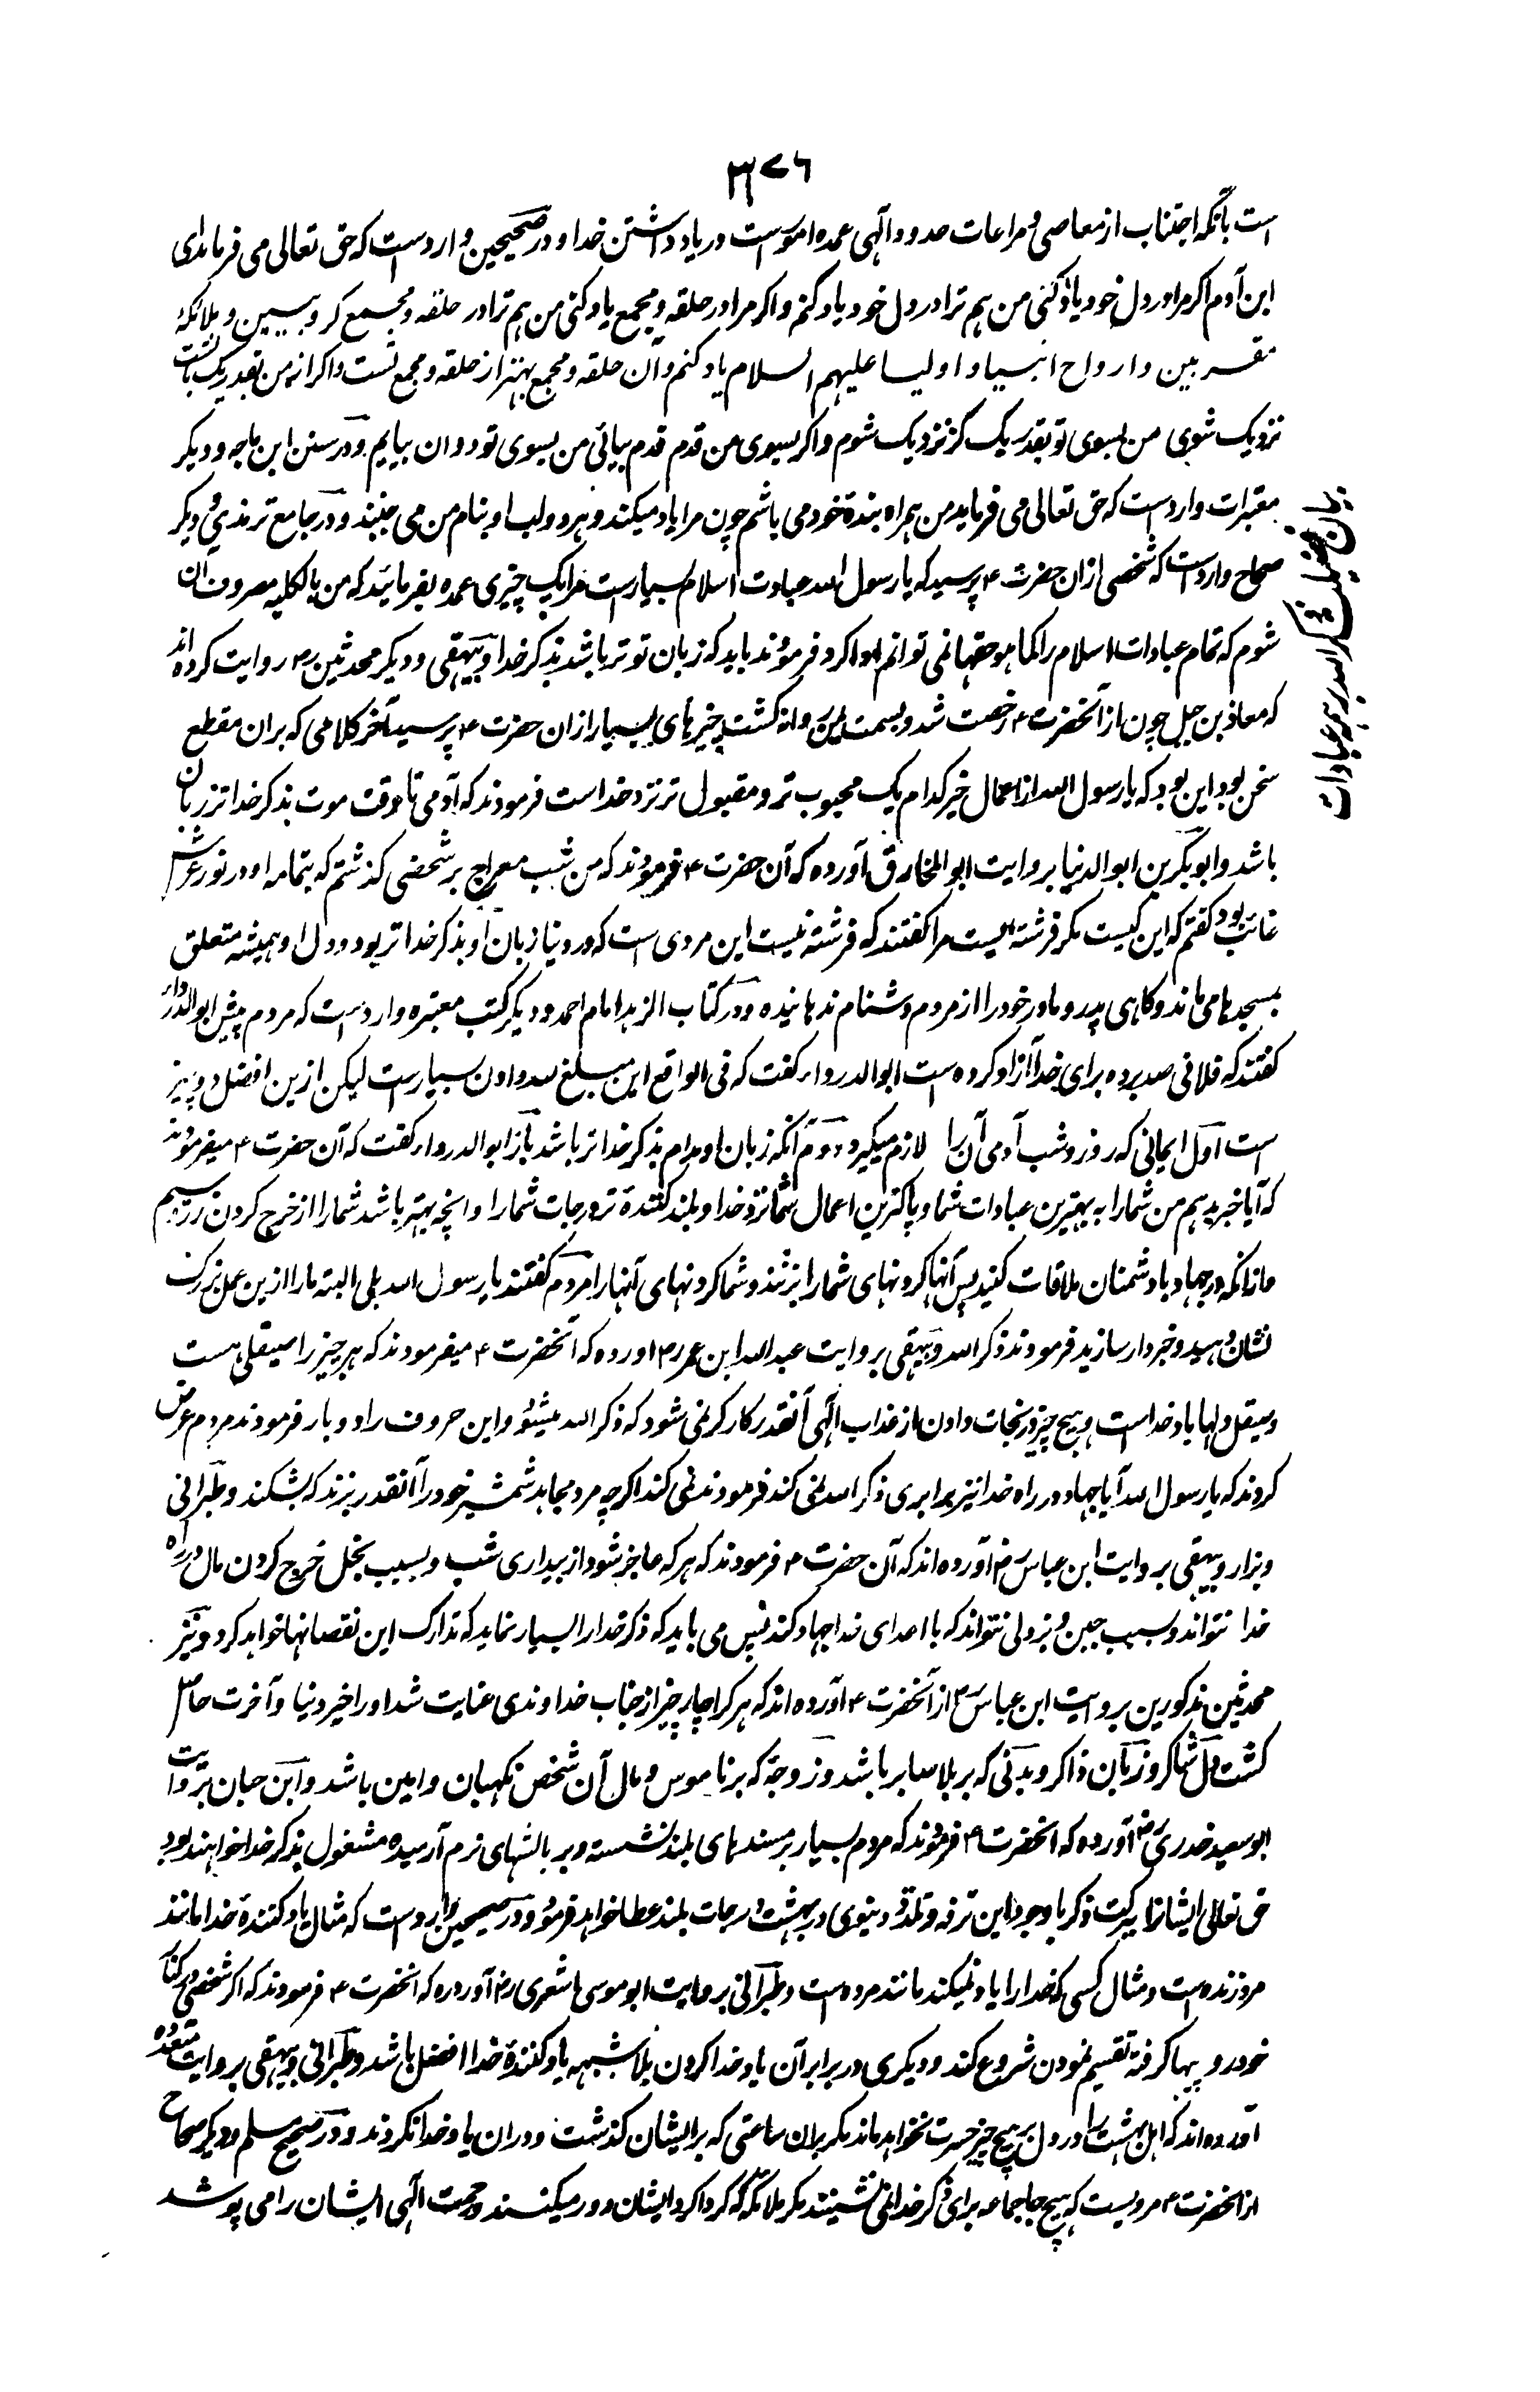 ۳۷۶
است بآنکه اجتناب از معاصی و مراعات حدود الهی عمده امور است در یاد داشتن خدا و در صحیحین وارد است که حق تعالی می فرماید ای
ابن آدم اگر مرا در دل خود یاد کنی من هم ترا در دل خود یاد کنم و اگر مرا در حلقه و مجمع یاد کنی من هم ترا در حلقه و مجمع کروبیین و ملائکه
مقربین و ارواح انبیا و اولیا علیهم السلام یاد کنم و آن حلقه و مجمع بهتر از حلقه و مجمع تست و اگر از من بقدر یک بالشت
نزدیک شوی من بسوی تو بقدر یک گز نزدیک شوم و اگر بسوی من قدم قدم بیائی من بسوی تو دوان بیایم و در سنن ابن ماجه و دیگر
معتبرات وارد است که حق تعالی می فرماید من همراه بندهٔ خود می باشم چون مرا یاد میکند و هر دو لب او بنام من می جنبند و در جامع ترمذی و دیگر
صحاح وارد است که شخصی از ان حضرت ۴ پرسید که یا رسول الله عبادت اسلام بسیار است مرا یک چیزی عمده بفرمائید که من بالکلیه مصروف ان
شوم که تمام عبادات اسلام را کما هو حقها نمی توانم ادا کرد فرمودند باید که زبان تو تر باشد بذکر خدا و بیهقی و دیگر محدثین رح روایت کرده اند
که معاذ بن جبل چون از آنحضرت ۴ رخصت شد و بسمت یمن روانه گشت چیزهای بسیار از ان حضرت ۴ پرسید آخر کلامی که بران مقطع
سخن بود این بود که یا رسول الله از اعمال خیر کدام یک محبوب تر و مقبول تر نزد خداست فرمودند که آدمی تا وقت موت بذکر خدا تر زبان
باشد و ابو بکر بن ابو الدنیا بروایت ابو المخارق آورده که آن حضرت ۴ فرمودند که من شب معراج بر شخصی گذشتم که بتمامه او در نور عرش
غائب بود گفتم که این کیست مگر فرشته ایست مرا گفتند که فرشته نیست این مردی است که در دنیا زبان او بذکر خدا تر بود و دل او همیشه متعلق
بمسجدها می ماند و گاهی پدر و مادر خود را از مردم دشنام ندهانیده و در کتاب الزهد امام احمد و دیگر کتب معتبره وارد است که مردم پیش ابو الدرداء
گفتند که فلانی صد برده برای خدا آزاد کرده است ابو الدرداء گفت که فی الواقع این مبلغ صد دادن بسیار است لیکن ازین افضل دو چیز
است اول ایمانی که روز و شب آدمی آن را لازم میگیرد دوم آنکه زبان او مدام بذکر خدا تر باشد باز ابو الدرداء گفت که آن حضرت ۴ میفرمودند
که آیا خبر بدهم من شما را به بهترین عبادات شما و پاکترین اعمال شما نزد خدا و بلند کننده تر درجات شما را و انچه بهتر باشد شما را از خرج کردن زر و سیم
و ازانکه در جهاد با دشمنان ملاقات کنید پس آنها گردنهای شما را بزنند و شما گردنهای آنها را مردم گفتند یا رسول الله بلی البته ما را ازین عمل بزرگ
نشان دهید و خبردار سازید فرمودند ذکر الله و بیهقی بروایت عبد الله ابن عمر رض اورده که آنحضرت ۴ میفرمودند که هر چیز را صیقلی هست
و صیقل دلها یاد خداست و هیچ چیز در نجات دادن از عذاب الهی آنقدر کارگر نمی شود که ذکر الله میشود و این حروف را دو بار فرمودند مردم عرض
کردند که یا رسول الله آیا جهاد در راه خدا نیز برابری ذکر الله نمی کند فرمودند نمی کند اگرچه مرد مجاهد شمشیر خود را آنقدر بزند که بشکند و طبرانی
و بزار و بیهقی بروایت ابن عباس رض آورده اند که آن حضرت ۴ فرمودند که هر که عاجز شود از بیداری شب و بسبب بخل خرج کردن مال در راه
خدا نتواند و بسبب جبن و بزدلی نتواند که با اعدای خدا جهاد کند پس می باید که ذکر خدا را بسیار نماید که تدارک این نقصانها خواهد کرد و نیز
محدثین مذکورین بروایت ابن عباس رض از آنحضرت ۴ آورده اند که هر کرا چار چیز از جناب خداوندی عنایت شد او را خیر دنیا و آخرت حاصل
گشت دل شاکر و زبان ذاکر و بدنی که بر بلا صابر باشد و زوجه که بر ناموس و مال آن شخص نگهبان و امین باشد و ابن حبان بروایت
ابو سعید خدری رض آورده که آنحضرت ۴ فرمودند که مردم بسیار بر مسندهای بلند نشسته و بر بالشهای نرم آرمیده مشغول بذکر خدا خواهند بود
حق تعالی ایشان را ببرکت ذکر با وجود این ترفه و تلذذ دنیوی در بهشت درجات بلند عطا خواهد فرمود و در صحیحین وارد است که مثال یاد کنندهٔ خدا مانند
مرد زنده است و مثال کسی که خدا را یاد نمیکند مانند مرده است و طبرانی بروایت ابو موسی اشعری رض آورده که آنحضرت ۴ فرمودند که اگر شخصی در کنار
خود روپیها گرفته تقسیم نمودن شروع کند و دیگری در برابر آن یاد خدا کردن بلا شبهه یاد کنندهٔ خدا افضل باشد و طبرانی و بیهقی بروایت متعدده
آورده اند که اهل بهشت را در دل بر هیچ چیز حسرت نخواهد ماند مگر بران ساعتی که بر ایشان گذشت و دران یاد خدا نکردند و در صحیح مسلم و دیگر صحاح
از آنحضرت ۴ مرویست که هیچ جا جماعه برای ذکر خدا نمی نشینند مگر ملائکه گرداگرد ایشان دور میکنند و رحمت الهی ایشان را می پوشد
بیان فضیلت ذکر الله بر همه عبادات